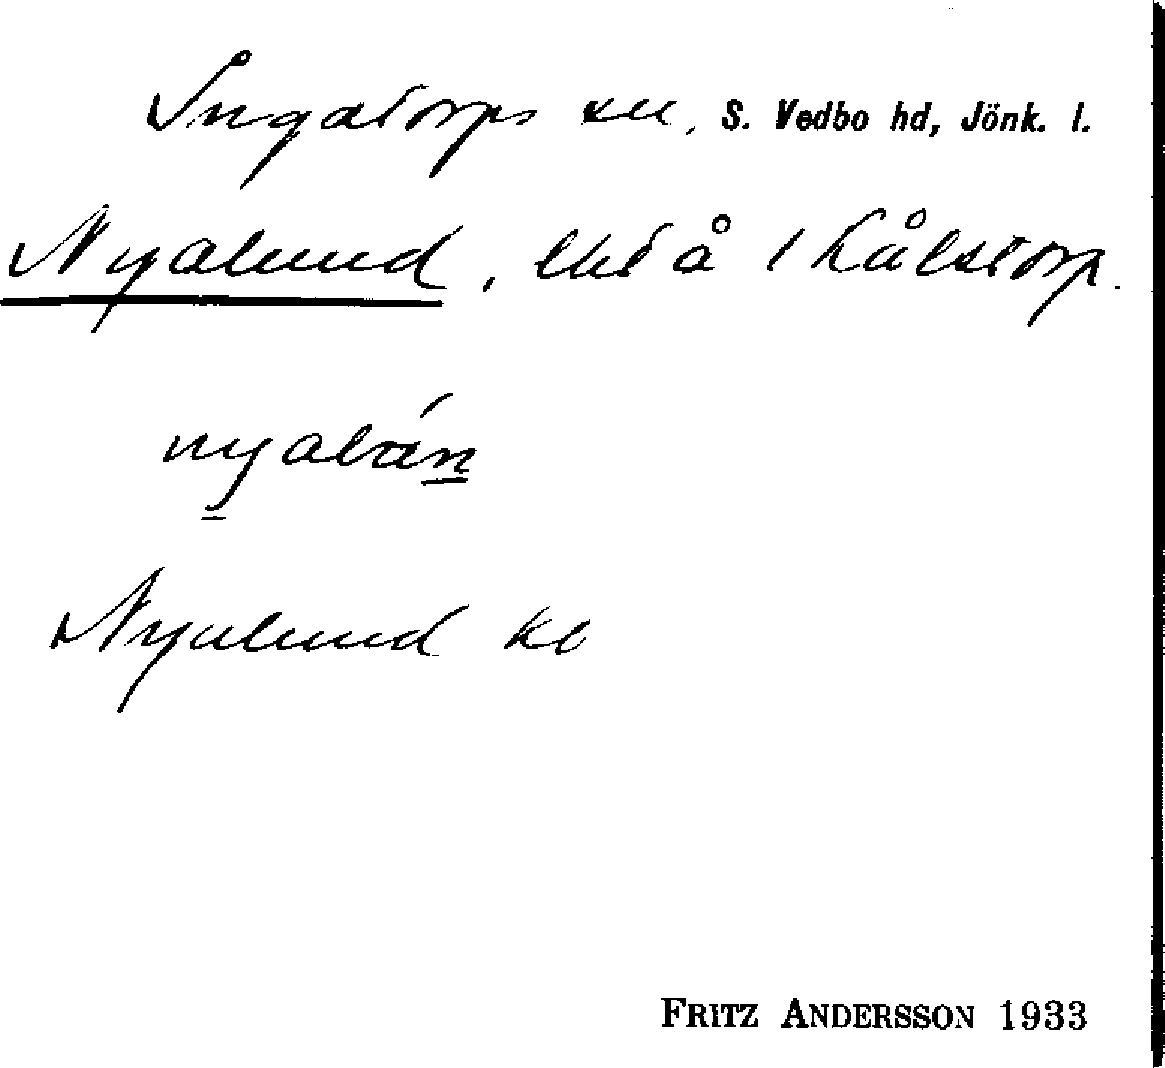 Ingatorps sn, S. Vedbo hd, Jönk. l.
Nyalund, lht å 1 Kålstorp.
nyalán
Nyalund kb
FRITZ ANDERSSON 1933